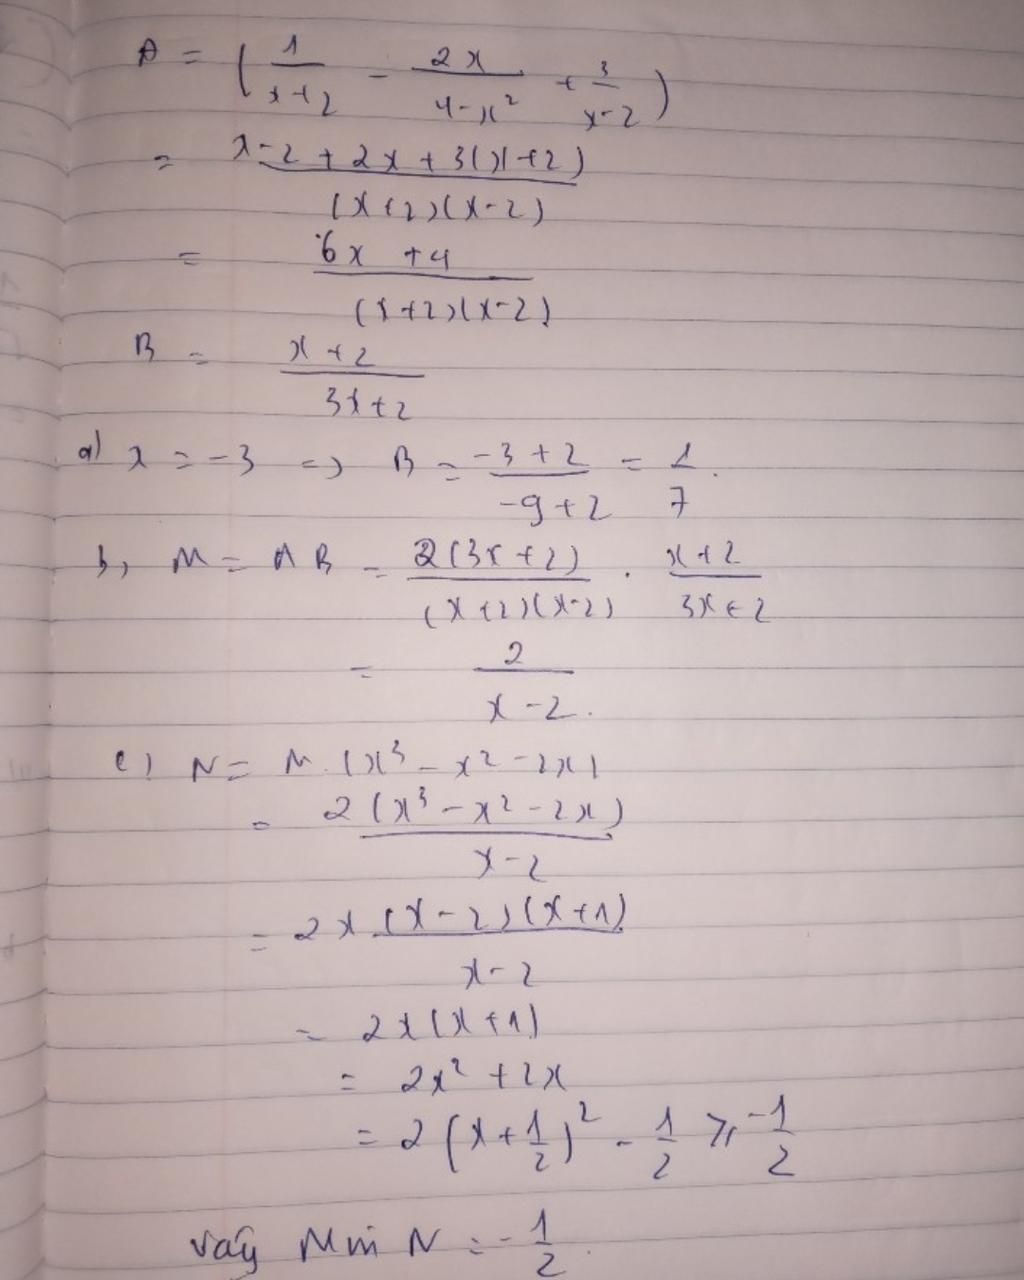 A = ( 1/(x+2) - 2x/(4-x²) + 3/(x-2) )
= (x-2 + 2x + 3(x+2))/((x+2)(x-2))
= (6x +4)/((x+2)(x-2))
B = (x+2)/(3x+2)
a) x = -3 => B = (-3+2)/(-9+2) = 1/7.
b, M = AB = 2(3x+2)/((x+2)(x-2)) . (x+2)/(3x+2)
= 2/(x-2).
c) N = M.(x³ - x² - 2x)
= 2(x³ - x² - 2x)/(x-2)
= 2x (x-2)(x+1)/(x-2)
= 2x(x+1)
= 2x² + 2x
= 2(x+1/2)² - 1/2 ⩾ -1/2
vậy Min N = -1/2.